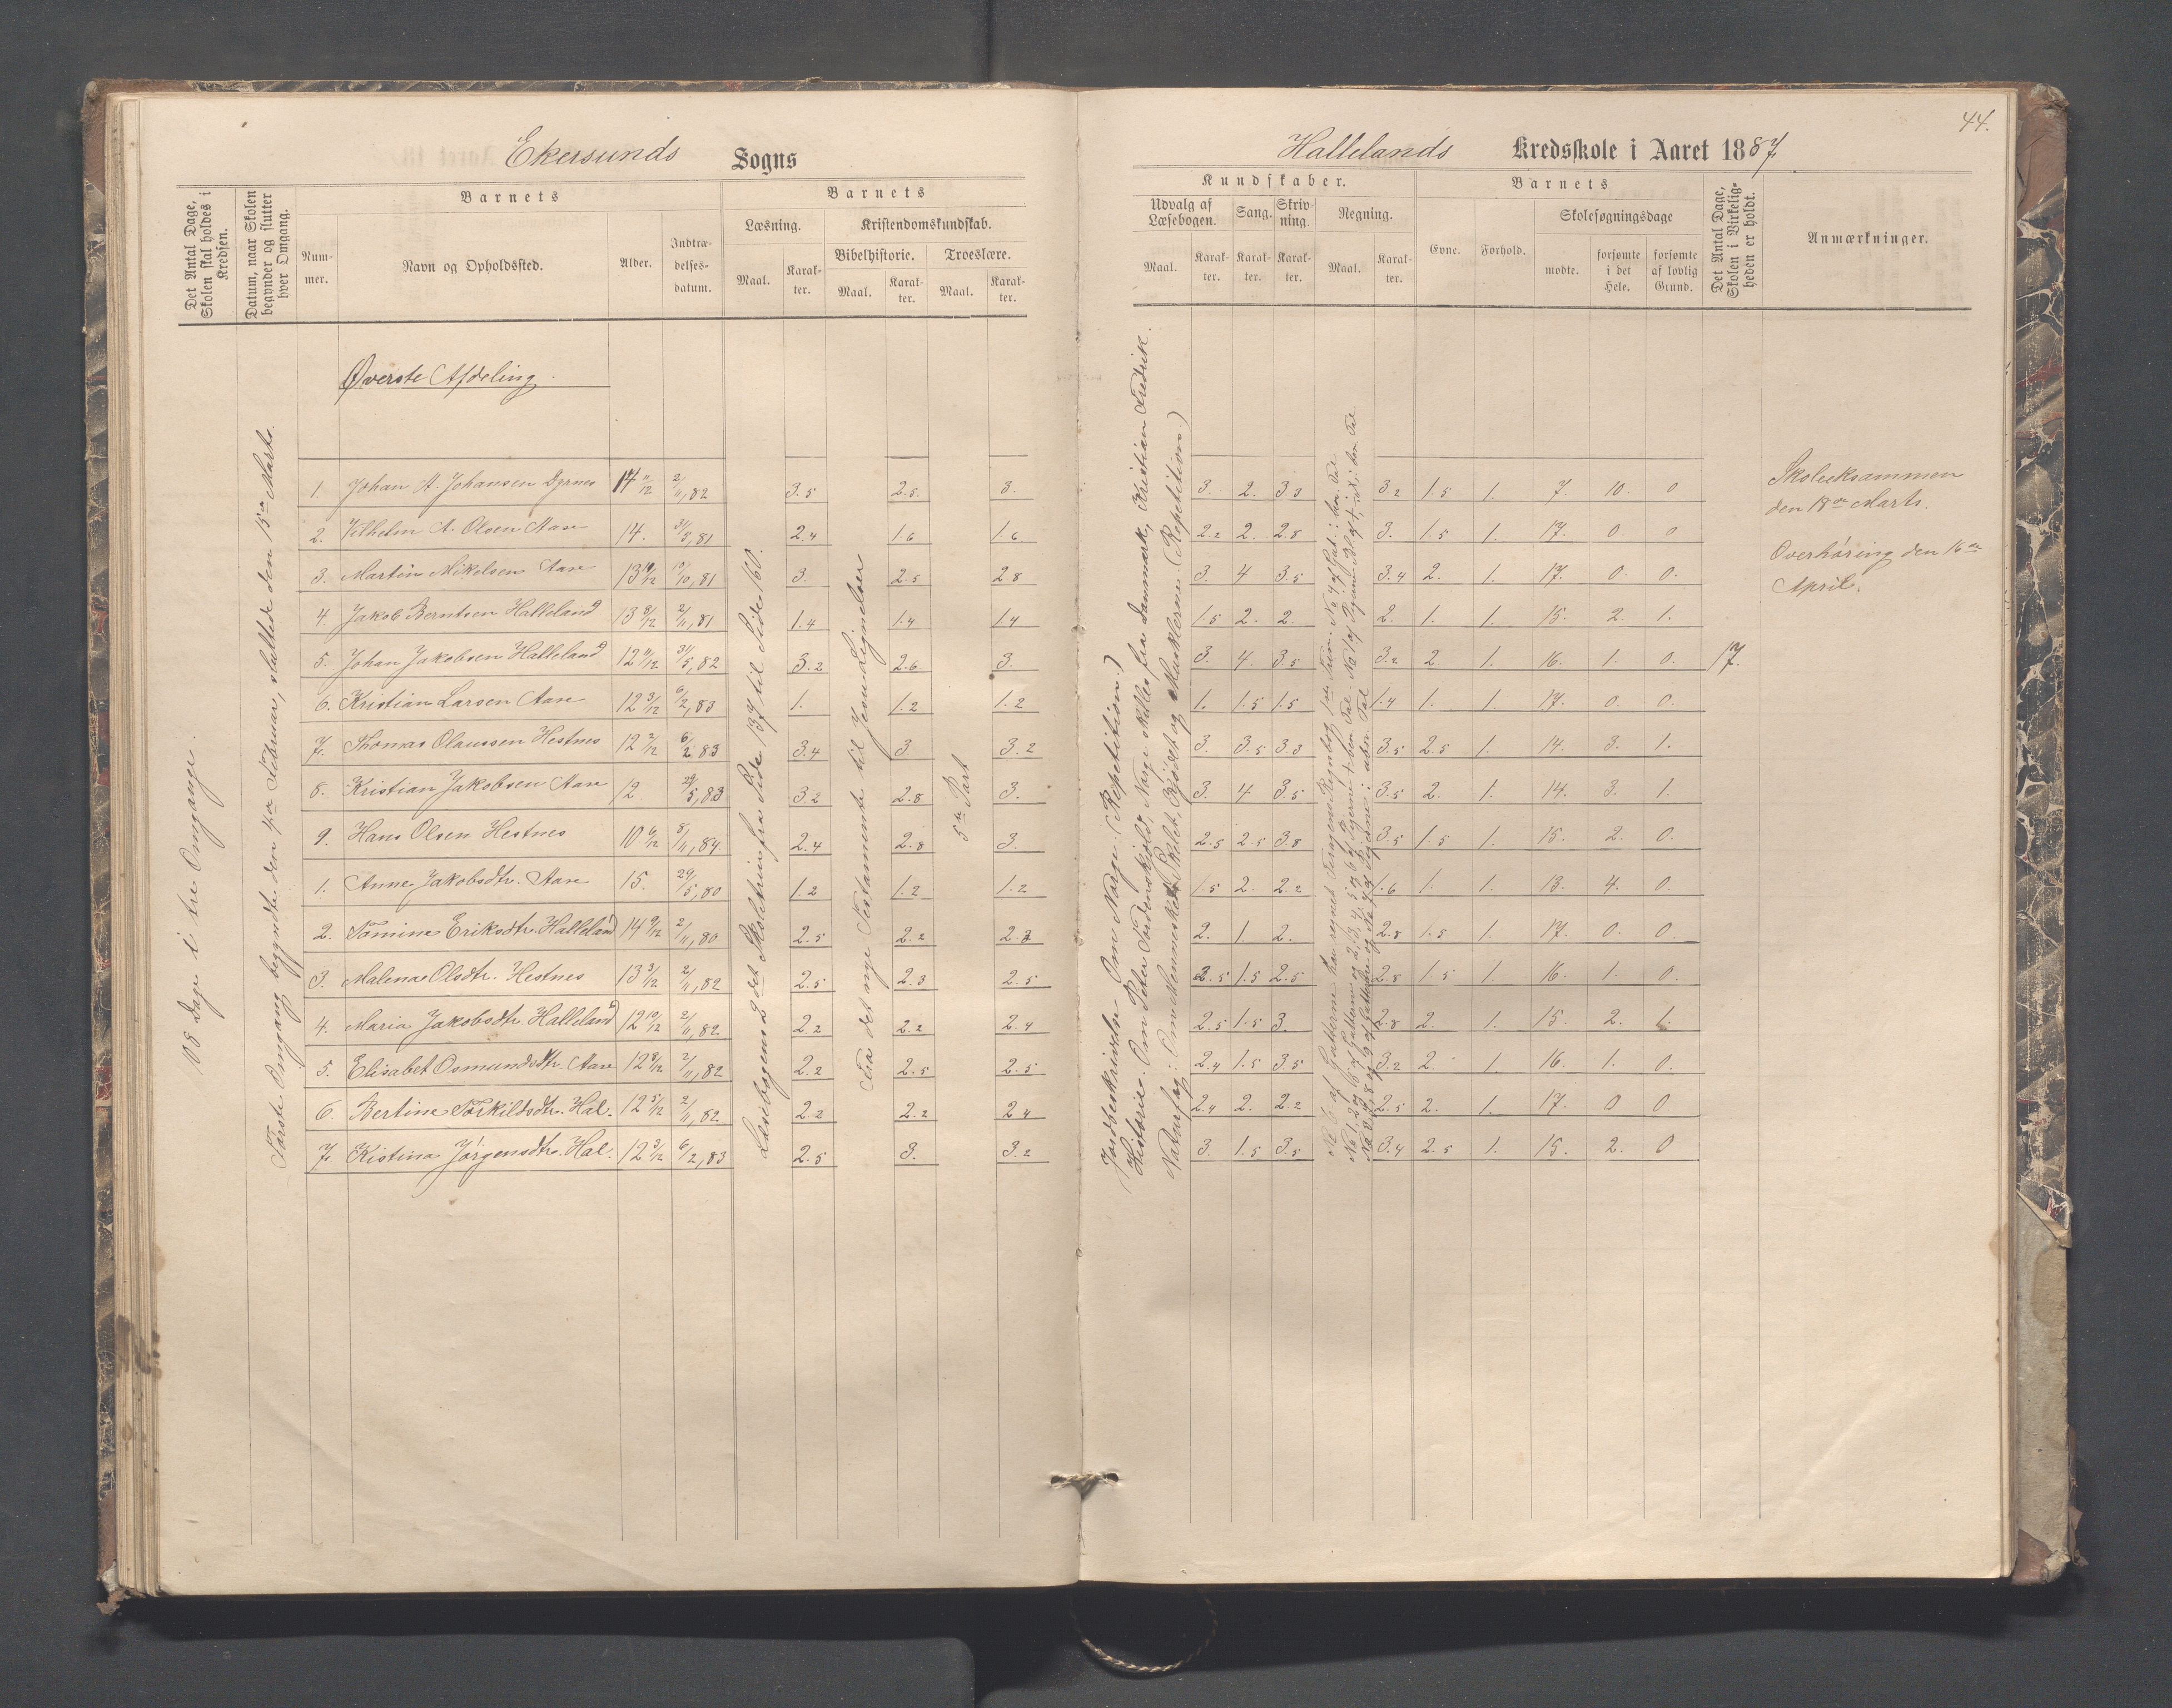 44.
Ekersunds Sogns
Hallelands Kredsskole i Aaret 1887.
Det Antal Dage, Skolen skal holdes i Kredsen.
Datum, naar Skolen begynder og slutter hver Omgang.
Barnets
Nummer.
Navn og Opholdssted.
Alder.
Indtrædelsesdatum.
Barnets
Læsning.
Maal.
Karakter.
Kristendomskundskab.
Bibelhistorie.
Maal.
Karakter.
Troeslære.
Maal.
Karakter.
Kundskaber.
Udvalg af Læsebogen.
Maal.
Karakter.
Sang.
Karakter.
Skrivning.
Karakter.
Regning.
Maal.
Karakter.
Barnets
Evne.
Forhold.
Skolesøgningsdage
mødte.
forsømte i det Hele.
forsømte af lovlig Grund.
Det Antal Dage, Skolen i Virkeligheden er holdt.
Anmærkninger.
Øverste Afdeling.
108 Dage i tre Omgange.
Første Omgang begyndte den 4de Februar, sluttede den 15de Marts.
Læsebogens 2det Skoletrin fra Side 137 til Side 160.
Fra det nye Testamente til Jesu Lignelser
5te Part
Jordbeskrivelse: Om Norge. (Repetition.)
Historie: Om Peter Tordenskjold, Norge skilles fra Danmark, Kristian Fredrik.
Naturfag: Om Mennesket: Skelet, Kjødet og Musklerne. (Repetition.)
1. Johan A. Johansen Dyrnes 14 11/12 2/11,82 3.5 2.5 3. 3. 2. 3 3 3.2 1.5 1. 7. 10. 0
2. Vilhelm A. Olsen Aase 14. 31/5,81 2.4 1.6 1.6 2.2 2. 2.8 3. 1.5 1. 17. 0. 0
3. Martin Mikelsen Aase 13 10/12 10/10,81 3. 2.5 2 8 3. 4 3.5 3.4 2. 1. 17. 0. 0.
4. Jakob Berntsen Halleland 13 8/12 2/11,81 1.4 1.4 1.4 1.5 2. 2. 2. 1. 1. 15. 2. 1.
5. Johan Jakobsen Halleland 12 11/12 31/5,82 3.2 2.6 3. 3. 4. 3.5 3.2 2. 1. 16. 1. 0. 17.
6. Kristian Larsen Aase 12 3/12 6/2,83 1. 1.2 1.2 1. 1.5 1.5 1.4 1. 1. 17. 0. 0.
7. Thomas Olaussen Hestnes 12 2/12 6/2,83 3.4 3 3.2 3. 3.5 3.3 3.5 2.5 1. 14. 3. 1.
8. Kristian Jakobsen Aase 12 29/5,83 3.2 2.8 3. 3. 4 3.5 3.5 2. 1. 14. 3. 1.
9. Hans Olsen Hestnes 10 6/12 8/11,84. 2.4 2.8 3. 2.5 2.5 3.8 3.5 1.5 1. 15. 2. 0.
1. Anne Jakobsdtr. Aase 15. 29/5,80 1.2 1.2 1.2 1.5 2. 2.2 1.6 1. 1. 13. 4. 0.
2. Tomine Eriksdtr. Halleland 14 9/12 2/11,80 2.5 2.2 2.3 2. 1. 2. 2.8 1.5 1. 17. 0. 0.
3. Malena Olsdtr. Hestnes 13 3/12 2/11,82 2.5 2.3 2.5 2.5 1.5 2.5 2.8 1.5 1. 16. 1. 0.
4. Maria Jakobsdtr. Halleland 12 10/12 2/11,82 2.2 2.2 2.4 2.5 1.5 3. 2.8 2. 1. 15. 2. 1.
5. Elisabet Osmundsdtr. Aase 12 8/12 2/11,82 2.2 2.5 2.5 2.4 1.5 3.5 3.2 2. 1. 16. 1. 0.
6. Bertine Torkildsdtr. Hal. 12 5/12 2/11,82 2.2 2.2 2 4 2.4 2. 2.2 2.5 2. 1. 17. 0 0.
7. Kistina Jørgensdtr. Hal. 12 3/12 6/2,83 2.5 3. 3.2 3. 1.5 3.5 3.4 2.5 1. 15. 2. 0
Skoleeksammen
den 18de Marts.
Overhøring den 16de
April.